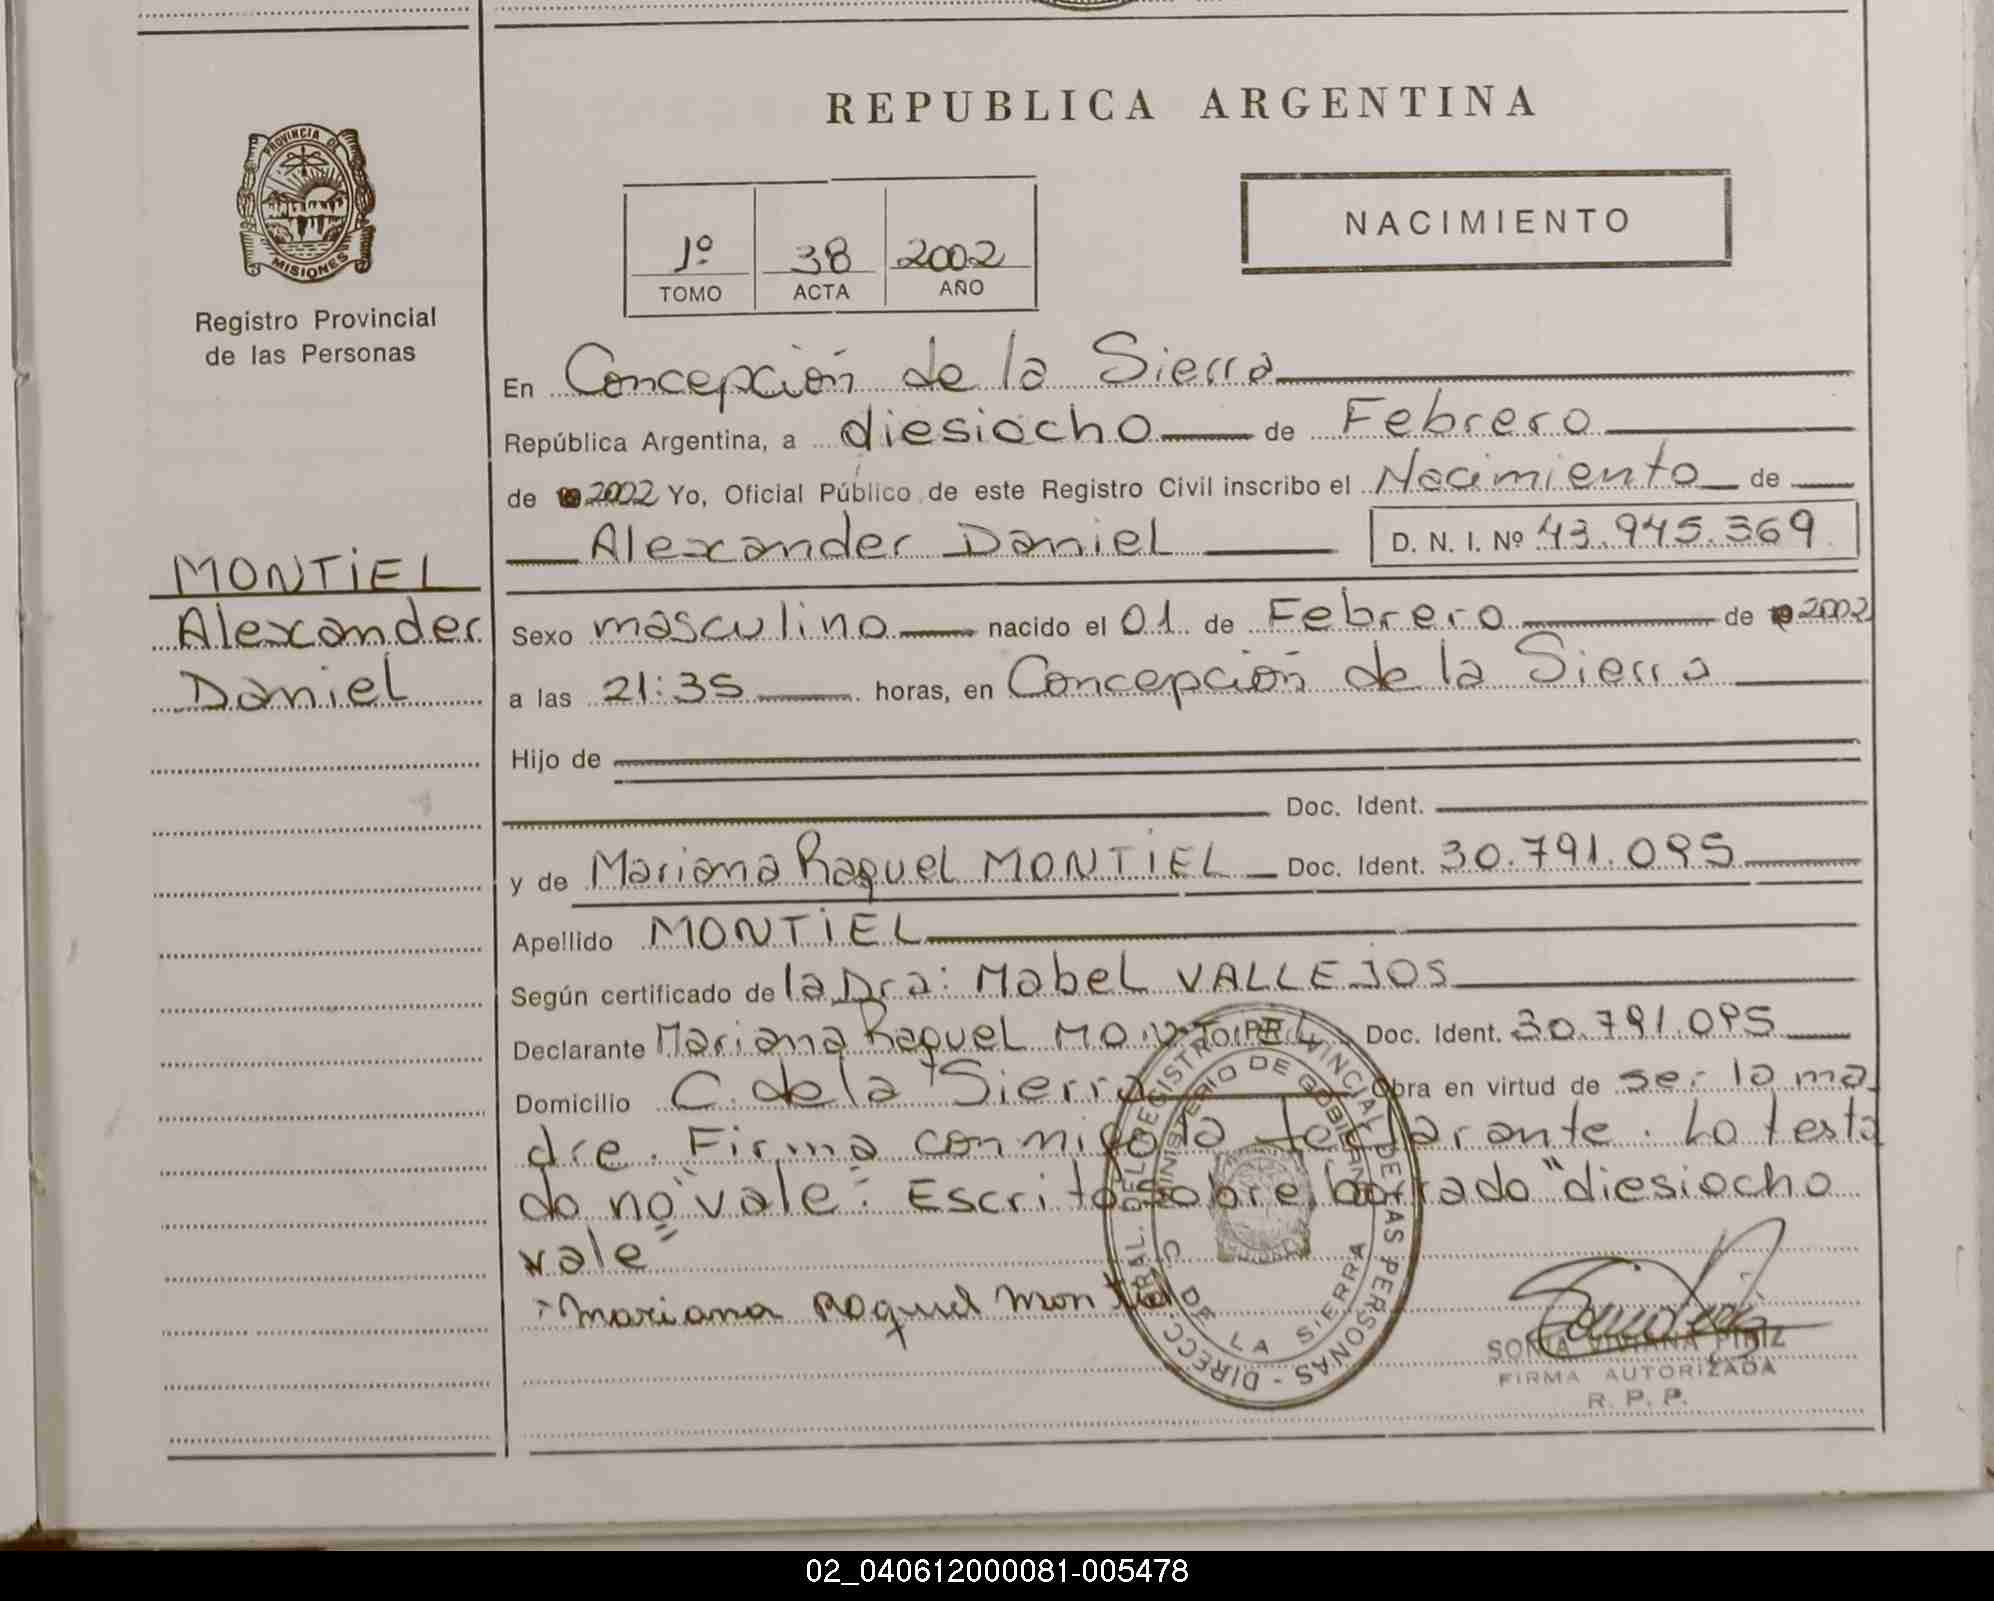 REPUBLICA ARGENTINA
PROVINCIA DE
MISIONES
Registro Provincial
de las Personas
1º 38 2002
TOMO ACTA AÑO
NACIMIENTO
En Concepción de la Sierra
República Argentina, a diesiocho de Febrero
de 2002 Yo, Oficial Público de este Registro Civil inscribo el Nacimiento de
Alexander Daniel D. N. I. Nº 43.945.369
MONTIEL
Alexander
Daniel
Sexo masculino nacido el 01 de Febrero de 2002
a las 21:35 horas, en Concepción de la Sierra
Hijo de
Doc. Ident.
y de Mariana Raquel MONTIEL Doc. Ident. 30.791.095
Apellido MONTIEL
Según certificado de la Dra: Mabel VALLEJOS
Declarante Mariana Raquel MONTIEL Doc. Ident. 30.791.095
Domicilio C. de la Sierra Obra en virtud de ser la ma
dre. Firma conmigo la declarante. Lo testa
do no "vale". Escrito sobre borrado "diesiocho
vale"
Mariana Raquel Montiel
DIRECC. GRAL. DEL REGISTRO PROVINCIAL DE LAS PERSONAS -
MINISTERIO DE GOBIERNO
C. DE LA SIERRA
SONIA VIVIANA PIRIZ
FIRMA AUTORIZADA
R. P. P.
02_040612000081-005478